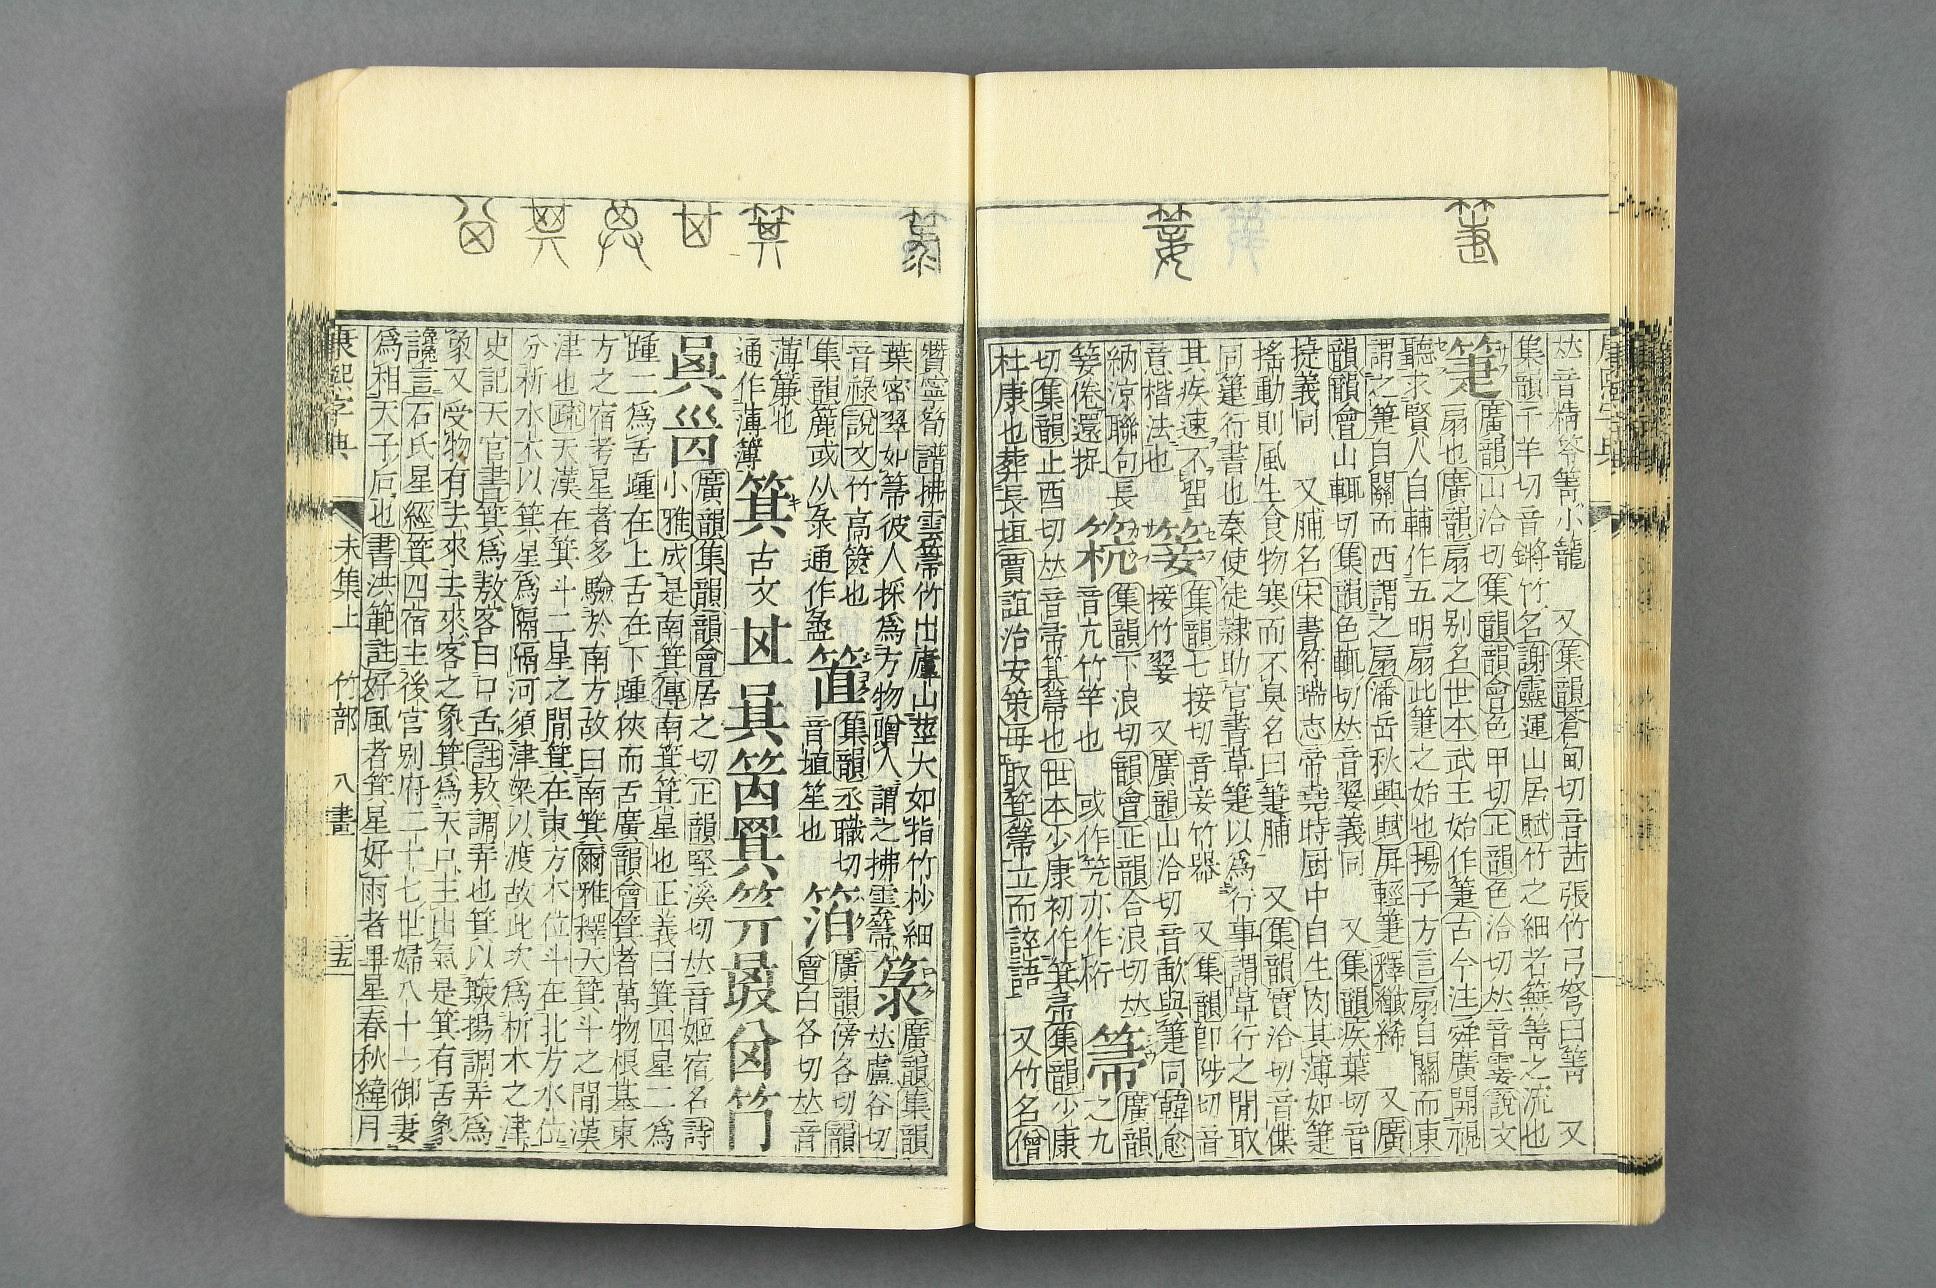 𠀤音精笭箐小籠 又集韻蒼甸切音茜張竹弓弩曰箐 又
集韻千羊切音鏘竹名謝靈運山居賦竹之細者無箐之流也
箑廣韻山洽切集韻韻會色甲切正韻色洽切𠀤音霎說文
扇也廣韻扇之別名世本武王始作箑古今注舜廣開視
聽求賢人自輔作五明扇此箑之始也揚子方言扇自關而東
謂之箑自關而西謂之扇潘岳秋興賦屏輕箑釋纖絺 又廣
韻韻會山輒切集韻色輒切𠀤音翣義同 又集韻疾葉切音
捷義同 又脯名宋書符瑞志帝堯時厨中自生肉其薄如箑
搖動則風生食物寒而不臭名曰箑脯 又集韻實洽切音偞
同箑行書也秦使徒隷助官書草箑以爲行事謂草行之閒取
其疾速不留意楷法也
箜集韻七接切音妾竹器 又集韻卽涉切音
接竹翣 又廣韻山洽切音歃與箑同韓愈
納涼聯句長箑倦還捉
箜集韻下浪切韻會正韻合浪切𠀤
音亢竹竿也 或作笐亦作桁
箒廣韻
之九切集韻止酉切𠀤音帚箕箒也世本少康初作箕帚集韻少康
杜康也葬長垣賈誼治安策母取箕箒立而誶語 又竹名僧
贊寧筍譜拂雲箒竹出廬山莖大如指竹杪細
葉密翠如箒彼人採爲方物贈人謂之拂雲箒
箓廣韻集韻
𠀤盧谷切
音祿說文竹高篋也
集韻簏或从彔通作盝
箵集韻丞職切
音埴笙也
箔廣韻傍各切韻
會白各切𠀤音
薄簾也
通作薄簿
箕古文𠀠
廣韻集韻韻會居之切正韻堅溪切𠀤音姬宿名詩
小雅成是南箕傳南箕箕星也正義曰箕四星二爲
踵二爲舌踵在上舌在下踵狹而舌廣韻會箕者萬物根基東
方之宿考星者多驗於南方故曰南箕爾雅釋天箕斗之閒漢
津也疏天漢在箕斗二星之閒箕在東方木位斗在北方水位
分析水木以箕星爲隔隔河須津梁以渡故此次爲析木之津
史記天官書箕爲敖客曰口舌註敖調弄也箕以簸揚調弄爲
象又受物有去來去來客之象箕爲天口主出氣是箕有舌象
讒言石氏星經箕四宿主後宮別府二十七世婦八十一御妻
爲相天子后也書洪範註好風者箕星好雨者畢星春秋緯月
康熙字典 未集上 竹部 八畫 三五